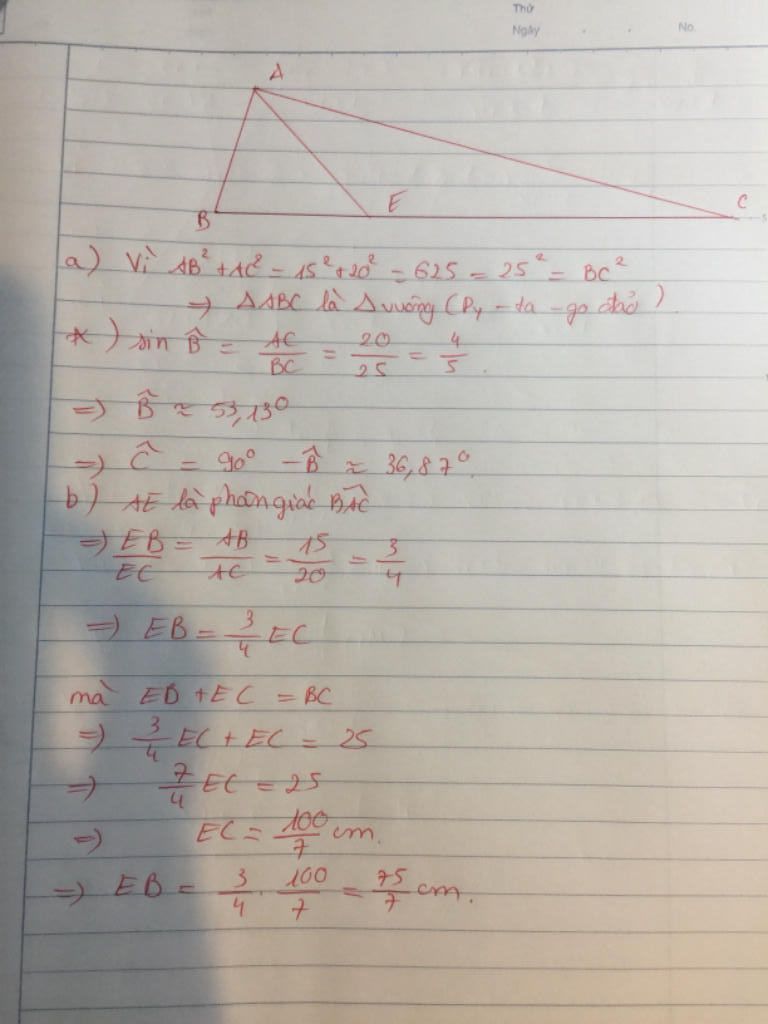 Thứ
Ngày . . No.
A
B E C
a) Vì AB² + AC² = 15² + 20² = 625 = 25² = BC²
=> ΔABC là Δ vuông (Py - ta - go đảo).
*) sin B̂ = AC/BC = 20/25 = 4/5.
=> B̂ ≈ 53,13°
=> Ĉ = 90° - B̂ ≈ 36,87°.
b) AE là phân giác BÂC
=> EB/EC = AB/AC = 15/20 = 3/4
=> EB = 3/4 EC
mà EB + EC = BC
=> 3/4 EC + EC = 25
=> 7/4 EC = 25
=> EC = 100/7 cm.
=> EB = 3/4 . 100/7 = 75/7 cm.